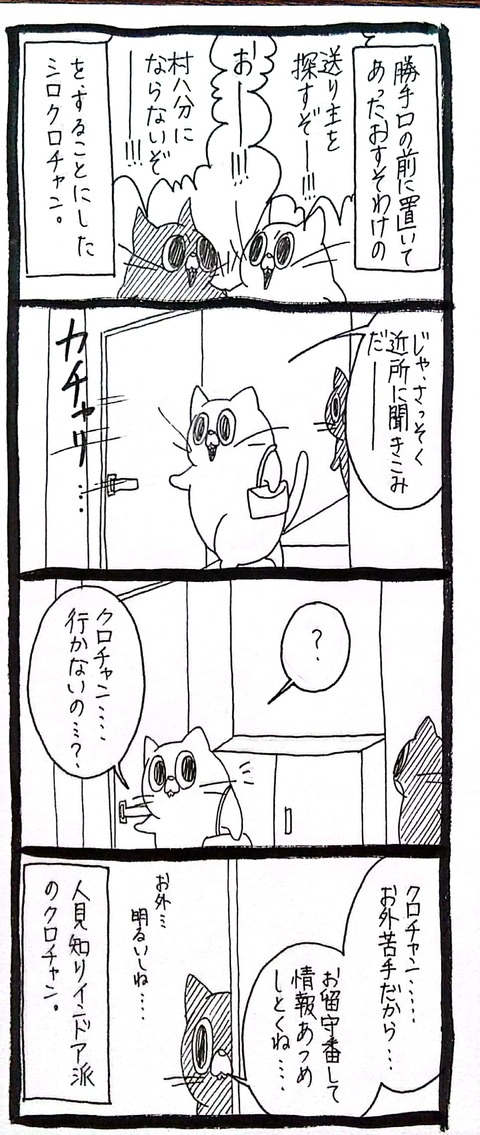 勝手口の前に置いて
あったおすそわけの
送り主を
探すぞー!!!
おー!!!
村八分に
ならないぞ
ー!!!
をすることにした
シロクロチャン。
じゃ、さっそく
近所に聞きこみ
だー
カチャリ…
?
クロチャン…
行かないの…?
クロチャン……
お外苦手だから…
お留守番して
情報あつめ
しとくね…
お外…
明るいしね…
人見知りインドア派
のクロチャン。